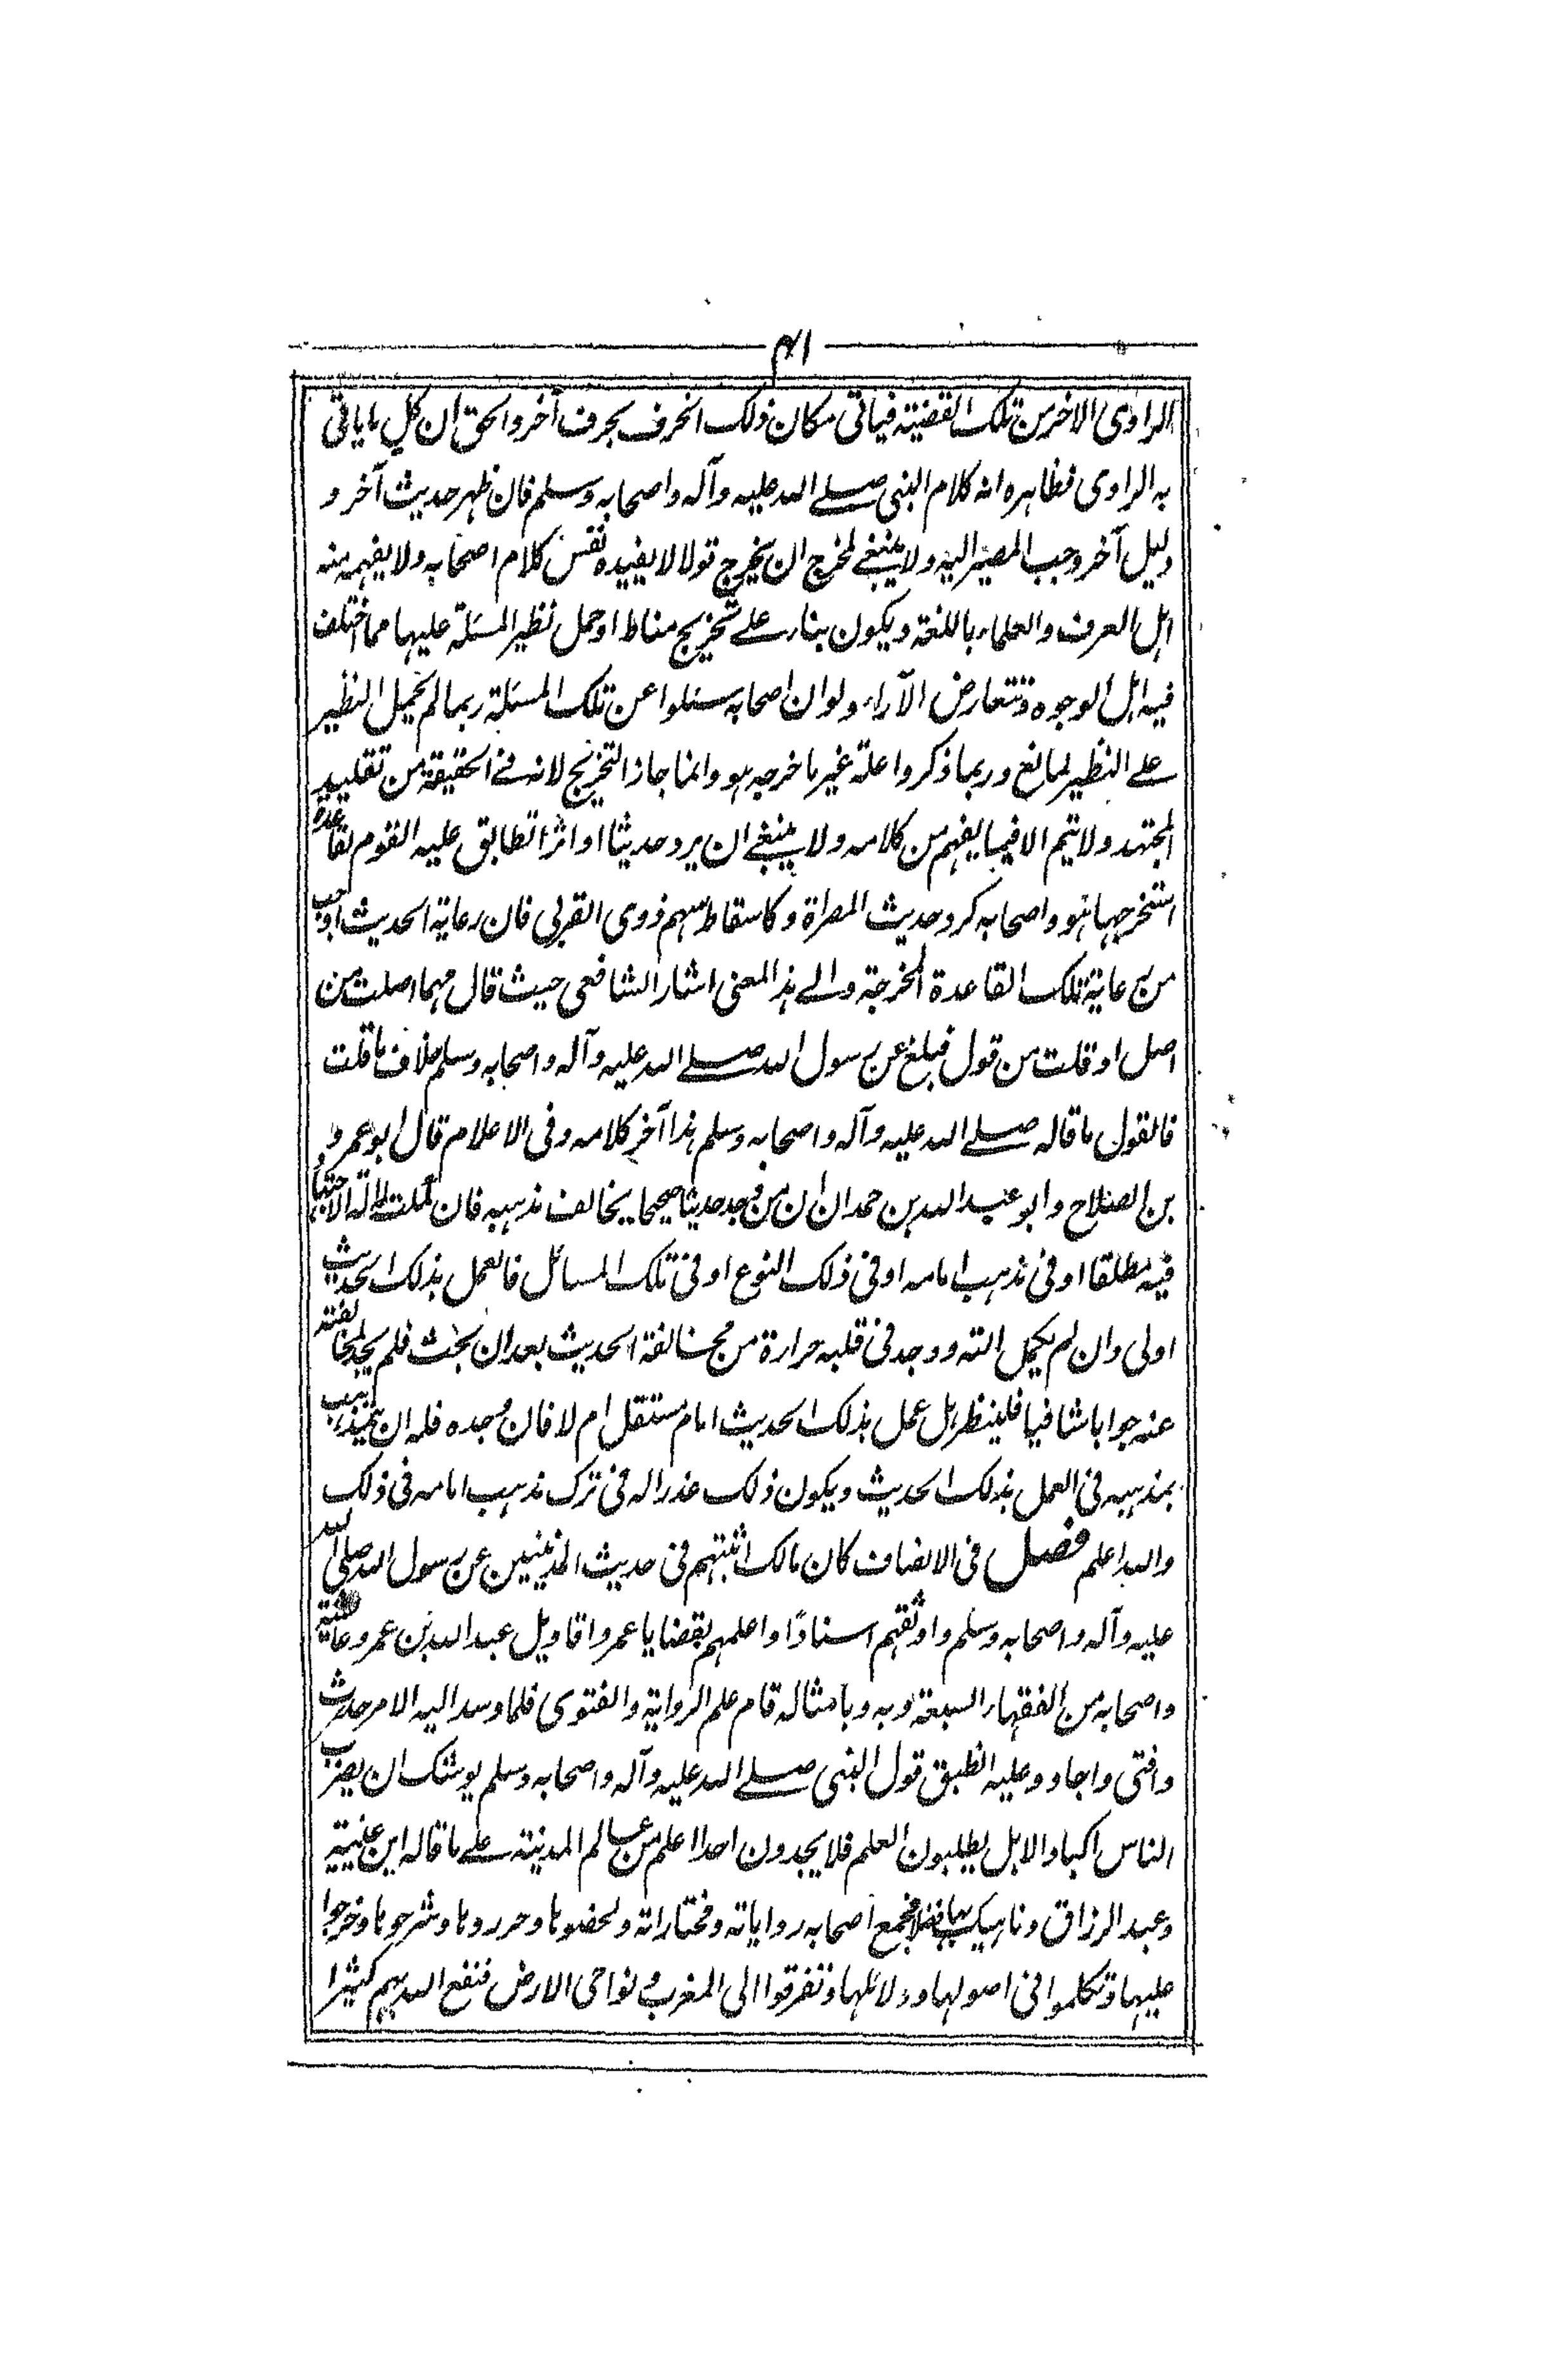 ٤١
الراوى الاخر من تلك القضية فياتى مكان ذلك الحرف بحرف آخر والحق ان كل ما ياتى
به الراوى فظاهره انه كلام النبى صلے الله عليه وآله واصحابه وسلم فان ظهر حديث آخر و
دليل آخر وجب المصير اليه ولا ينبغے لمخرج ان يخرج قولا لا يفيده نفس كلام اصحابه ولا يفهمه منه
اهل العرف والعلماء باللغة ويكون بناء علے تخريج مناط او حمل نظير المسئلة عليها مما اختلف
فيه اهل الوجوه وتتعارض الآراء ولو ان اصحابه سئلوا عن تلك المسئلة ربما لم يحمل النظير
علے النظير لمانع وربما ذكروا علة غير ما خرجه هو وانما جاز التخريج لانه فے الحقيقة من تقليد
المجتهد ولا تيم الا فيما يفهم من كلامه ولا ينبغے ان يرد حديثا او اثرا تطابق عليه القوم لقاعدة
استخرجها هو واصحابه كرد حديث المصراة وكاسقاط سهم ذوى القربى فان رعاية الحديث اوجب
من رعاية تلك القاعدة المخرجة والے هذا المعنى اشار الشافعى حيث قال مهما اصلت من
اصل او قلت من قول فبلغ عن رسول الله صلے الله عليه وآله واصحابه وسلم خلاف ما قلت
فالقول ما قاله صلے الله عليه وآله واصحابه وسلم هذا آخر كلامه وفى الاعلام قال ابو عمرو
بن الصلاح وابو عبد الله بن حمدان ان من وجد حديثا صحيحا يخالف مذهبه فان كملت له آلة الاجتهاد
فيه مطلقا او فى مذهب امامه او فى ذلك النوع او فى تلك المسائل فالعمل بذلك الحديث
اولى وان لم يكمل آلته ووجد فى قلبه حرارة من مخالفة الحديث بعد ان بحث فلم يجد لمخالفته
عنه جوابا شافيا فلينظر هل عمل بذلك الحديث امام مستقل ام لا فان وجده فله ان يتمذهب
بمذهبه فى العمل بذلك الحديث ويكون ذلك عذرا له فى ترك مذهب امامه فى ذلك
والله اعلم فصل فى الانصاف كان مالك اثبتهم فى حديث المدنيين عن رسول الله صلى الله
عليه وآله واصحابه وسلم واوثقهم اسنادًا واعلمهم بقضايا عمر واقاويل عبد الله بن عمر وعائشة
واصحابه من الفقهاء السبعة وبه وبامثاله قام علم الرواية والفتوى فلما وسد اليه الامر حدث
وافتى واجاد وعليه انطبق قول النبى صلے الله عليه وآله واصحابه وسلم يوشك ان يضرب
الناس اكباد الابل يطلبون العلم فلا يجدون احدا اعلم من عالم المدينة علے ما قاله ابن عيينة
وعبد الرزاق وناهيك بهما فضلا فجمع اصحابه رواياته ومختاراته ولخصوها وحرروها وشرحوها وخرجوا
عليها وتكلموا فى اصولها ودلائلها وتفرقوا الى المغرب ونواحى الارض فنفع الله بهم كثيرا